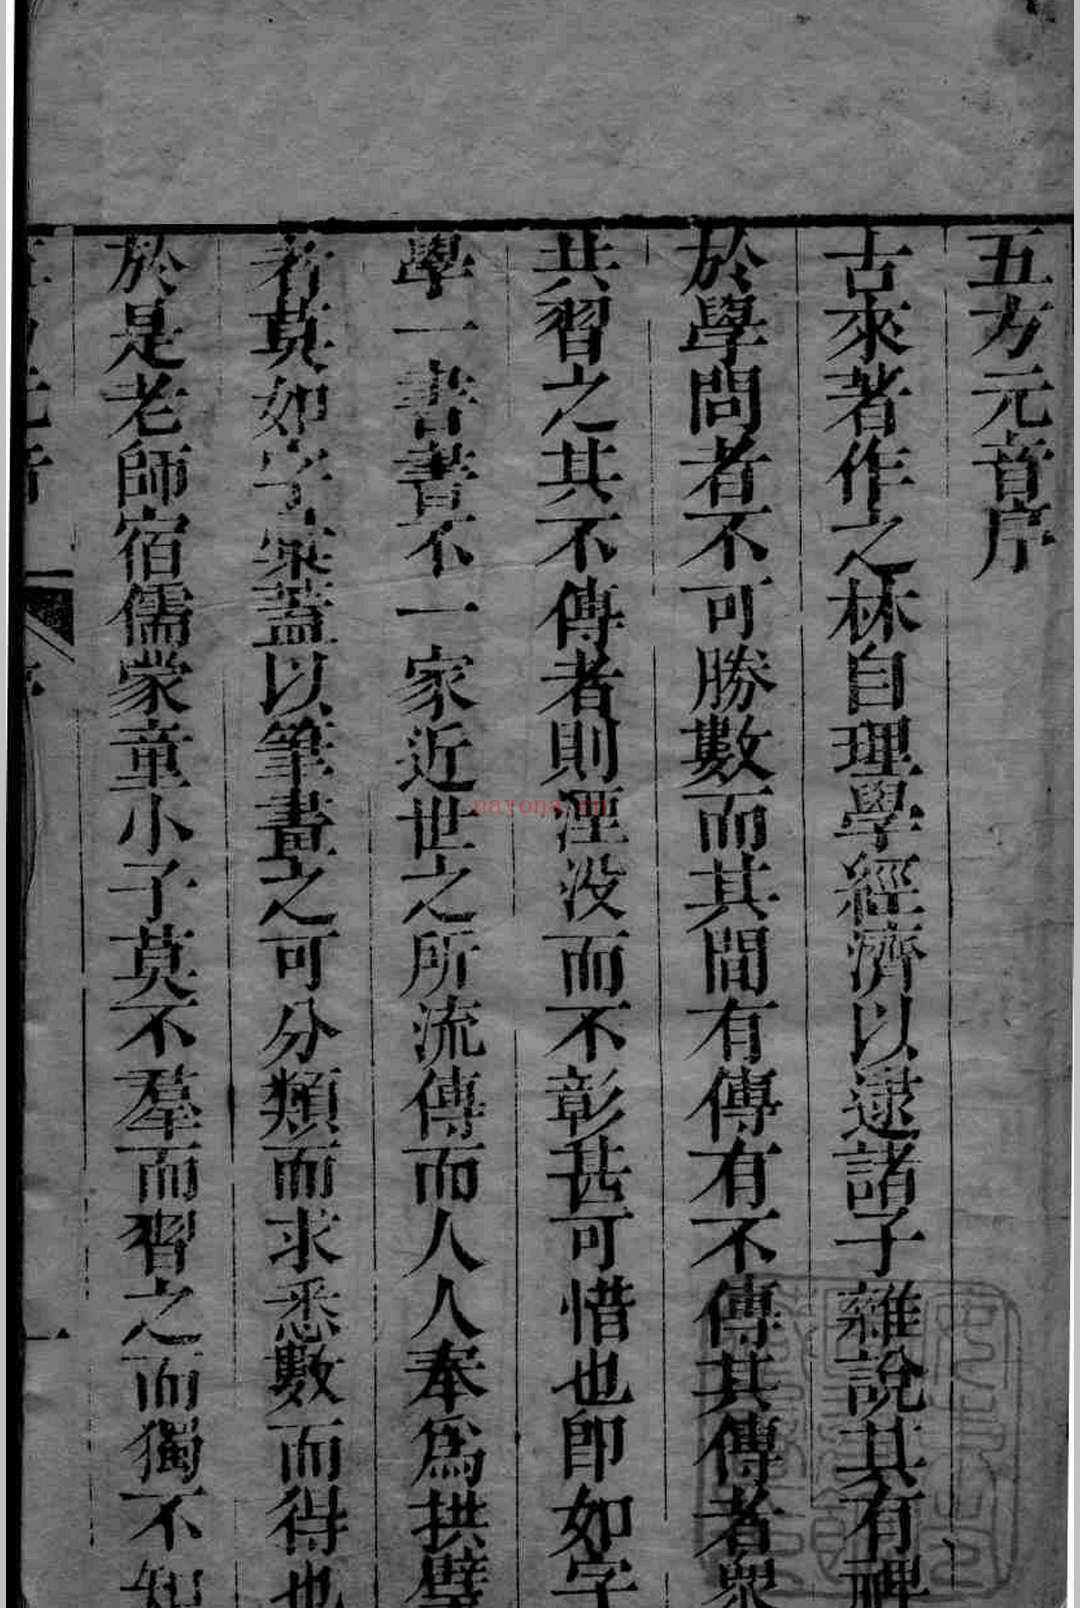 五方元音序
古來著作之林自理學經濟以逮諸子雜說其有裨
於學問者不可勝數而其間有傳有不傳其傳者衆
共習之其不傳者則湮没而不彰甚可惜也即如字
學一書書不一家近世之所流傳而人人奉爲拱璧
者莫如字彙蓋以筆畫之可分類而求悉數而得也
於是老師宿儒蒙童小子莫不羣而習之而獨不知
五方元音
序
一
nayona.cn